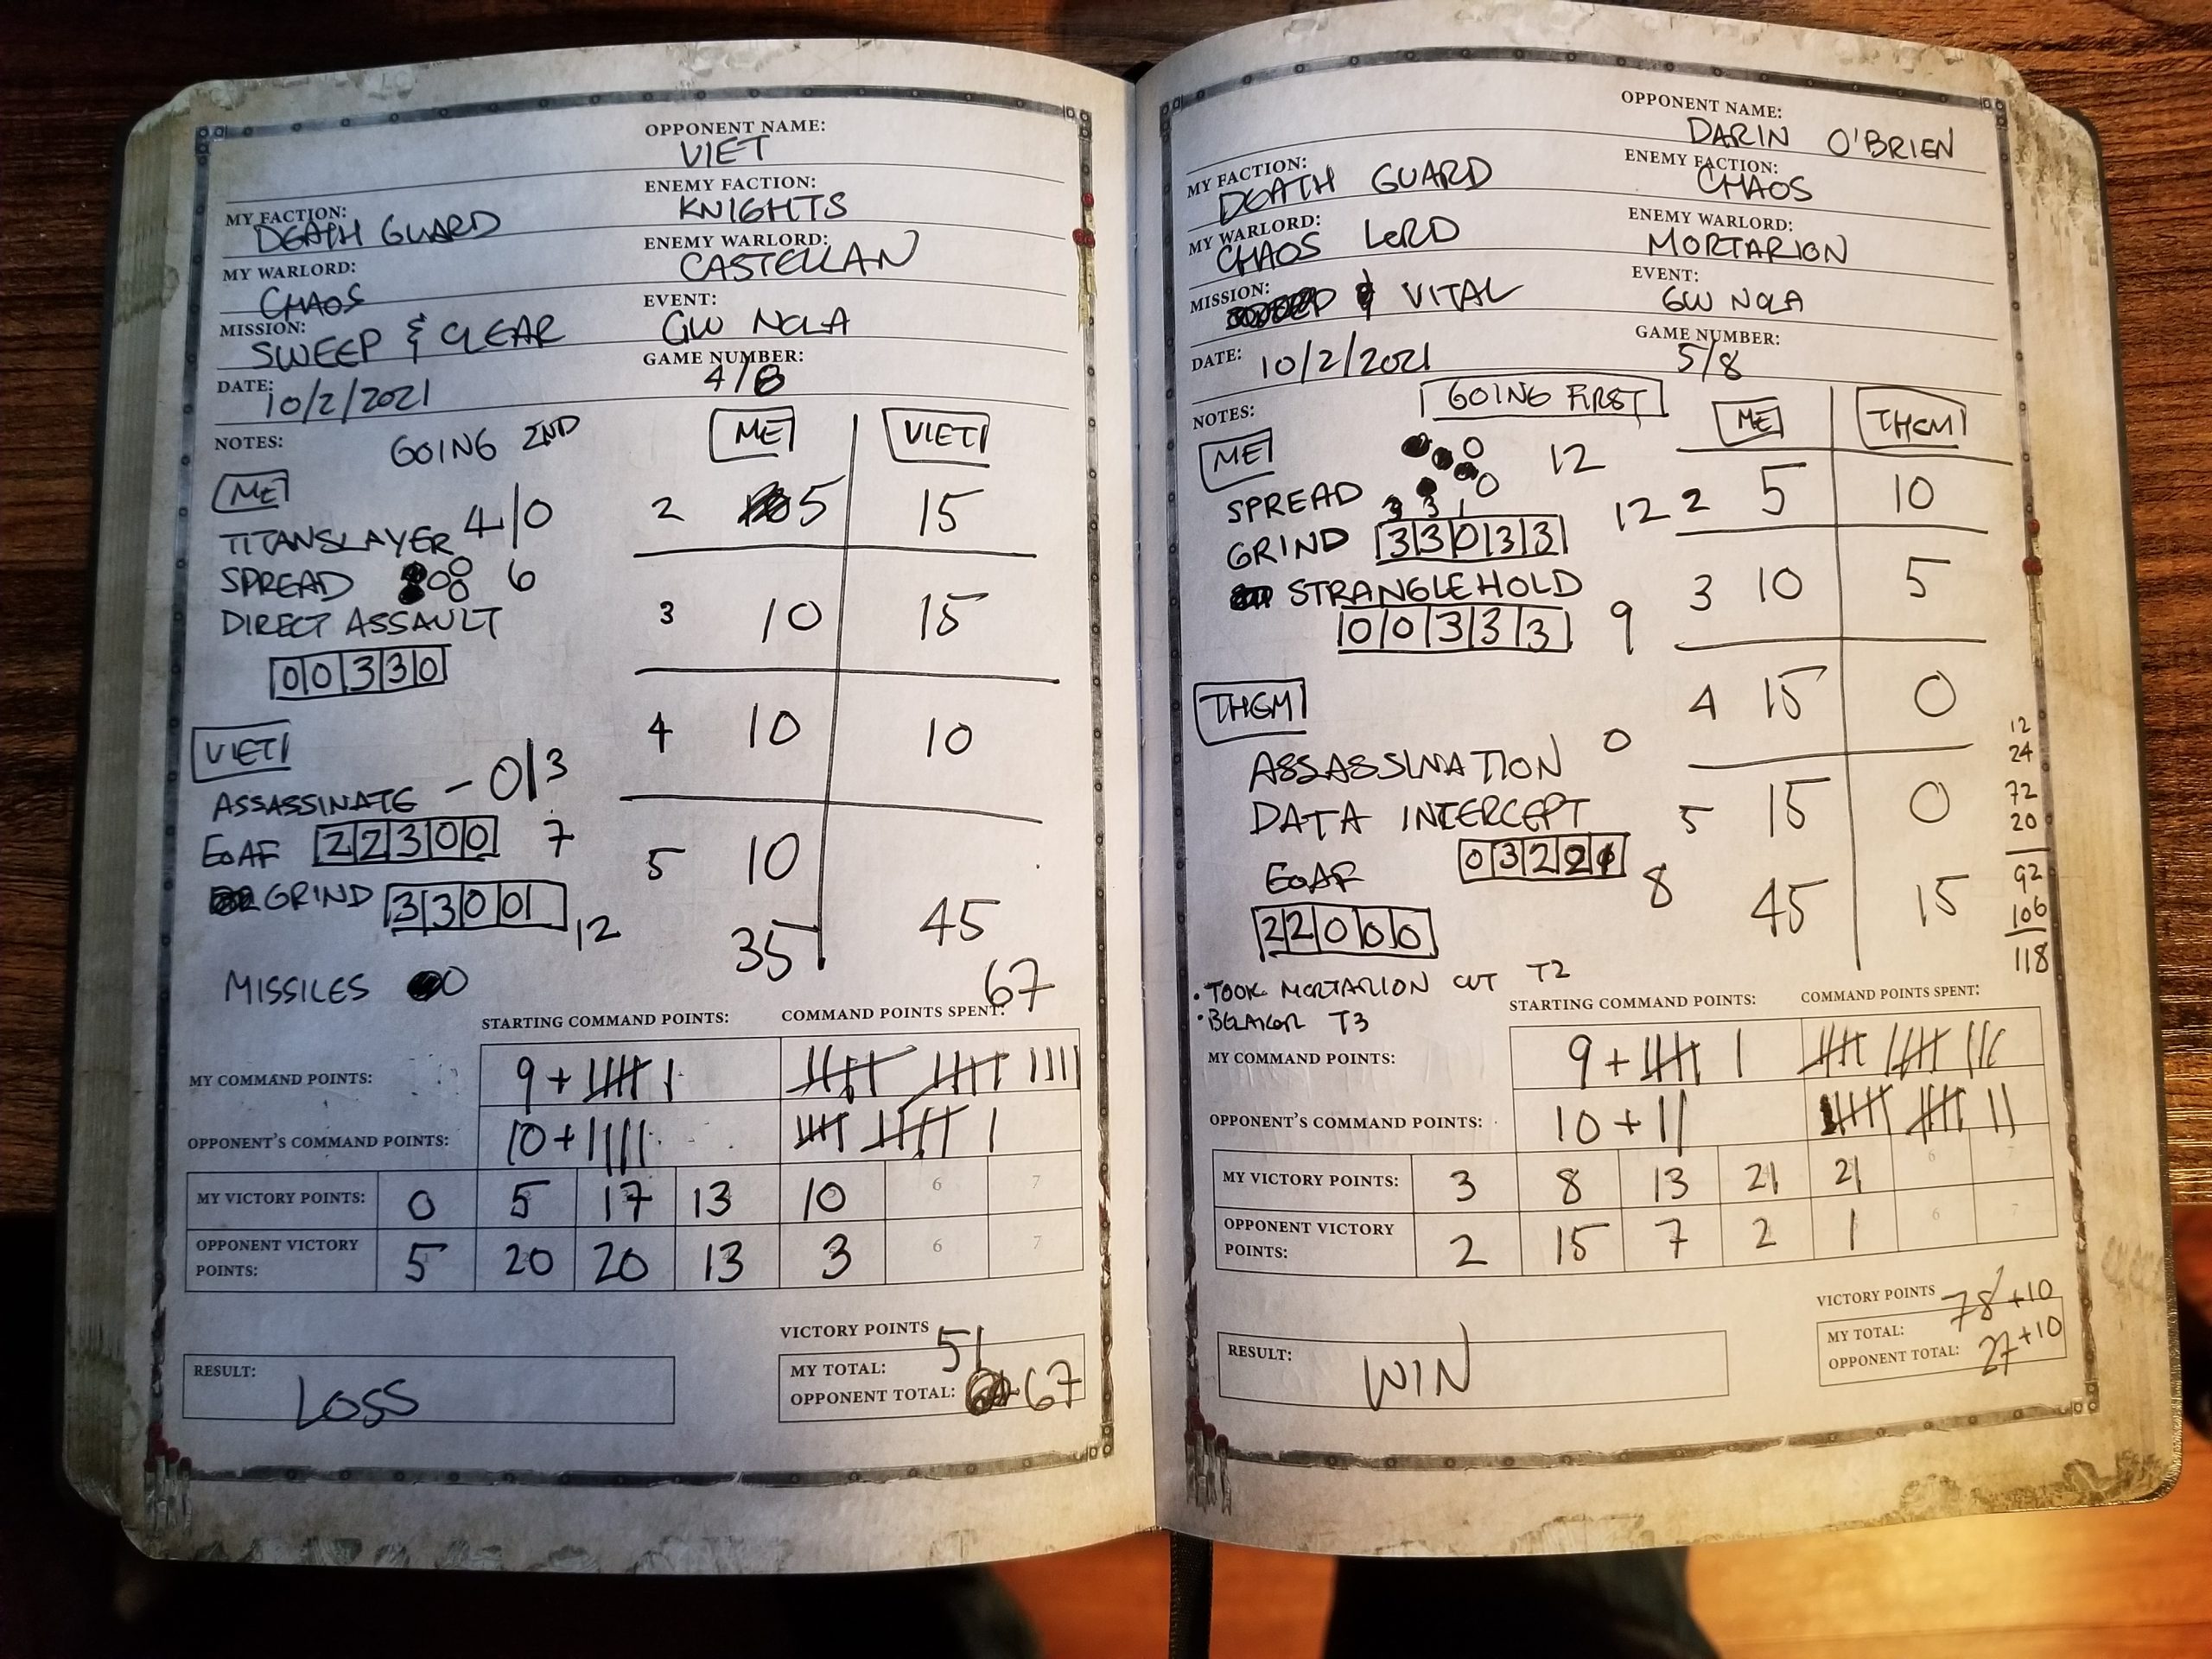 OPPONENT NAME:
VIET
ENEMY FACTION:
KNIGHTS
MY FACTION:
DEATH GUARD
ENEMY WARLORD:
CASTELLAN
MY WARLORD:
CHAOS
EVENT:
GW NOLA
MISSION:
SWEEP & CLEAR
GAME NUMBER:
4/8
DATE:
10/2/2021
NOTES:
GOING 2ND
ME VIET
ME
TITANSLAYER 4/0
2 5 15
SPREAD 6
DIRECT ASSAULT
3 10 15
0 0 3 3 0
4 10 10
VIET
ASSASSINATE - 0/3
EOAF 2 2 3 0 0 7
5 10
GRIND 3 3 0 0 12
35 45
MISSILES
67
STARTING COMMAND POINTS: COMMAND POINTS SPENT:
MY COMMAND POINTS: 9 +
OPPONENT'S COMMAND POINTS: 10 +
MY VICTORY POINTS: 0 5 17 13 10 6 7
OPPONENT VICTORY POINTS: 5 20 20 13 3 6 7
VICTORY POINTS
MY TOTAL: 51
OPPONENT TOTAL: 67
RESULT: LOSS
OPPONENT NAME:
DARIN O'BRIEN
MY FACTION:
DEATH GUARD
ENEMY FACTION:
CHAOS
MY WARLORD:
CHAOS LORD
ENEMY WARLORD:
MORTARION
MISSION:
& VITAL
EVENT:
GW NOLA
DATE: 10/2/2021
GAME NUMBER:
5/8
NOTES:
GOING FIRST
ME THEM
ME
SPREAD 12
3 3 1
GRIND 3 3 0 3 3 12
2 5 10
STRANGLEHOLD
0 0 3 3 3 9
3 10 5
THEM
4 15 0
ASSASSINATION 0
DATA INTERCEPT
0 3 2 2 8
5 15 0
EOAF
2 2 0 0 0
45 15
12
24
72
20
92
106
118
• TOOK MORTARION OUT T2
• BELAKOR T3
STARTING COMMAND POINTS: COMMAND POINTS SPENT:
MY COMMAND POINTS: 9 +
OPPONENT'S COMMAND POINTS: 10 +
MY VICTORY POINTS: 3 8 13 21 21 6 7
OPPONENT VICTORY POINTS: 2 15 7 2 1 6 7
VICTORY POINTS
MY TOTAL: 78 +10
OPPONENT TOTAL: 27 +10
RESULT: WIN